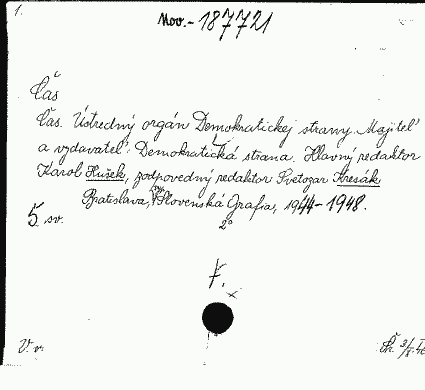 1.
Nov.- 187721
Čas
Čas. Ústredný orgán Demokratickej strany. Majiteľ
a vydavateľ: Demokratická strana. Hlavný redaktor
Karol Hušek, zodpovedný redaktor Svetozar Hresák
Bratislava, Slovenská Grafia, 1944-1948.
5 sv. 2°
V. v.